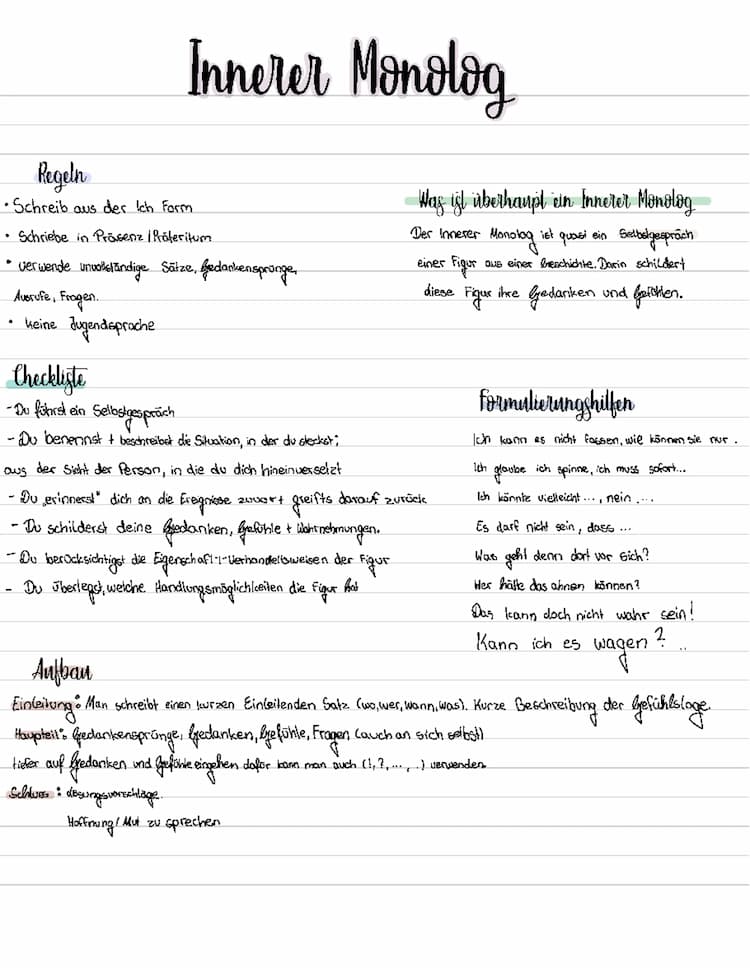 Innerer Monolog
Regeln
• Schreib aus der Ich Form
• Schriebe in Präsenz / Präteritum
• verwende unvollständige Sätze, Gedankensprünge,
Ausrufe, Fragen.
• keine Jugendsprache
Was ist überhaupt ein Innerer Monolog
Der Innerer Monolog ist quasi ein Selbstgespräch
einer Figur aus einer Geschichte. Darin schildert
diese Figur ihre Gedanken und Gefühlen.
Checkliste
- Du führst ein Selbstgespräch
- Du benennst + beschreibst die Situation, in der du steckst;
aus der Sicht der Person, in die du dich hineinversetzt
- Du „erinnerst" dich an die Eregnisse zuvor + greifts darauf zurück
- Du schilderst deine Gedanken, Gefühle + Wahrnehmungen.
- Du berücksichtigst die Eigenschaft-/-Verhandelsweisen der Figur
- Du überlegst, welche Handlungsmöglichkeiten die Figur hat
Formulierungshilfen
Ich kann es nicht fassen, wie können sie nur.
Ich glaube ich spinne, ich muss sofort...
Ich könnte vielleicht ..., nein ...
Es darf nicht sein, dass ...
Was geht denn dort vor sich?
Wer hätte das ahnen können?
Das kann doch nicht wahr sein!
Kann ich es wagen? ..
Aufbau
Einleitung: Man schreibt einen kurzen Einleitenden Satz (wo, wer, wann, was). Kurze Beschreibung der Gefühlslage.
Haupteil: Gedankensprünge, Gedanken, Gefühle, Fragen (auch an sich selbst)
tiefer auf Gedanken und Gefühle eingehen dafür kann man auch (!, ?, ..., .) verwenden
Schluss: Lösungsvorschläge.
Hoffnung / Mut zu sprechen